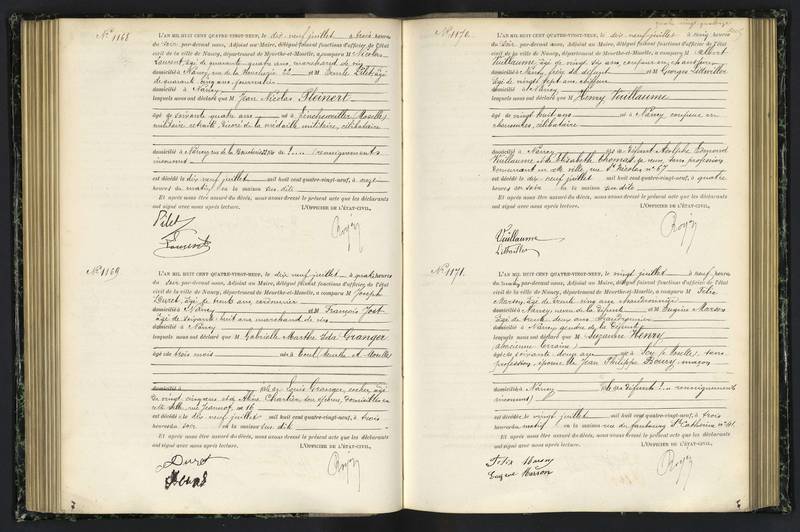 N° 1168
L'AN MIL HUIT CENT QUATRE-VINGT-NEUF, le dix-neuf juillet à trois heures
du soir par-devant nous, Adjoint au Maire, délégué faisant fonctions d'officier de l'état
civil de la ville de Nancy, département de Meurthe-et-Moselle, a comparu M Nicolas
Laurent, âgé de quarante quatre ans, marchand de vin
domicilié à Nancy, rue de la 22 et M Pilet âgé
de quarante cinq ans, journalier
domicilié à Nancy
lesquels nous ont déclaré que M Jean Nicolas Pleinert
âgé de soixante quatre ans né à (Moselle)
militaire retraité, décoré de la médaille militaire, célibataire
domicilié à Nancy rue de la fils de !... (renseignements
inconnus)
est décédé le dix-neuf juillet mil huit cent quatre-vingt-neuf, à onze
heures du matin en la maison sus-dite
Et après nous être assuré du décès, nous avons dressé le présent acte que les déclarants
ont signé avec nous après lecture. L'OFFICIER DE L'ÉTAT-CIVIL,
Pilet
Laurent
N° 1169
L'AN MIL HUIT CENT QUATRE-VINGT-NEUF, le dix-neuf juillet à quatre heures
du soir par-devant nous, Adjoint au Maire, délégué faisant fonctions d'officier de l'état
civil de la ville de Nancy, département de Meurthe-et-Moselle, a comparu M Joseph
Duret, âgé de trente ans cordonnier
domicilié à Nancy et M François Jost
âgé de soixante huit ans marchand de vin
domicilié à Nancy
lesquels nous ont déclaré que M Gabrielle Marthe Ida Granger
âgé de trois mois née à Toul (Meurthe & Moselle)
domicilié à fille de Louis Granger, cocher âgé
de vingt cinq ans et d' Aline Charlier, son épouse, domiciliés en
cette ville, rue Jeannot, n° 16
est décédée le dix-neuf juillet mil huit cent quatre-vingt-neuf, à trois
heures du soir en la maison sus-dite
Et après nous être assuré du décès, nous avons dressé le présent acte que les déclarants
ont signé avec nous après lecture. L'OFFICIER DE L'ÉTAT-CIVIL,
Duret
quatre vingt quatorze
N° 1170
L'AN MIL HUIT CENT QUATRE-VINGT-NEUF, le dix-neuf juillet à cinq heures
du soir par-devant nous, Adjoint au Maire, délégué faisant fonctions d'officier de l'état
civil de la ville de Nancy, département de Meurthe-et-Moselle, a comparu M Albert
Vuillaume, âgé de vingt six ans coupeur en chaussures
domicilié à Nancy, frère du défunt et M Georges
âgé de vingt sept ans
domicilié à Nancy
lesquels nous ont déclaré que M Henry Vuillaume
âgé de vingt huit ans né à Nancy coupeur en
chaussures, célibataire
domicilié à Nancy fils de défunt Adolphe Edmond
Vuillaume, et de Elisabeth Thomas, sa veuve, sans profession
demeurant en cette ville, rue St Nicolas n° 67
est décédé le dix-neuf juillet mil huit cent quatre-vingt-neuf, à quatre
heures du soir en la maison sus-dite
Et après nous être assuré du décès, nous avons dressé le présent acte que les déclarants
ont signé avec nous après lecture. L'OFFICIER DE L'ÉTAT-CIVIL,
Vuillaume
N° 1171
L'AN MIL HUIT CENT QUATRE-VINGT-NEUF, le vingt juillet à neuf heures
du matin par-devant nous, Adjoint au Maire, délégué faisant fonctions d'officier de l'état
civil de la ville de Nancy, département de Meurthe-et-Moselle, a comparu M Félix
Marson, âgé de trente cinq ans
domicilié à Nancy, neveu de la défunte et M Eugène Marson
âgé de trente deux ans
domicilié à Nancy gendre de la défunte
lesquels nous ont déclaré que M Suzanne Henry
(alsacienne lorraine)
âgée de soixante douze ans née à (Moselle), sans
profession, épouse de Jean Philippe Boury, maçon
domiciliée à Nancy fille de défunts !... (renseignements
inconnus)
est décédée le vingt juillet mil huit cent quatre-vingt-neuf, à trois
heures du matin en la maison rue du faubourg Ste Catherine n° 41
Et après nous être assuré du décès, nous avons dressé le présent acte que les déclarants
ont signé avec nous après lecture. L'OFFICIER DE L'ÉTAT-CIVIL,
Félix Marson
Eugène Marson